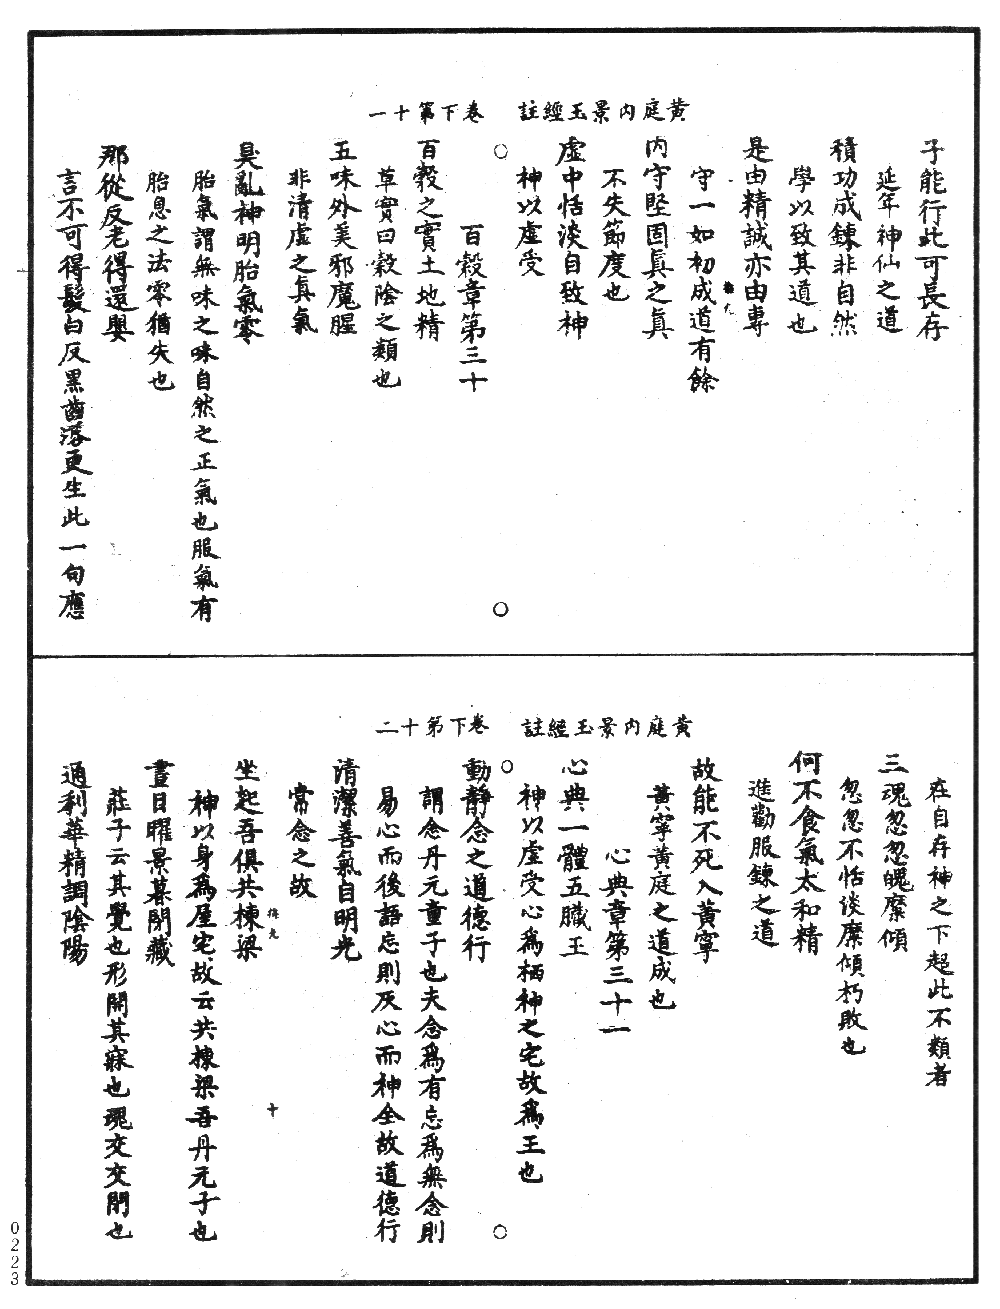 黃庭內景玉經註　卷下第十一
子能行此可長存
延年神仙之道
積功成鍊非自然
學以致其道也
是由精誠亦由專
守一如初成道有餘
內守堅固眞之眞
不失節度也
虛中恬淡自致神
神以虛受
百穀章第三十
百穀之實土地精
草實曰穀陰之類也
五味外美邪魔腥
非清虛之眞氣
臭亂神明胎氣零
胎氣謂無味之味自然之正氣也服氣有
胎息之法零猶失也
那從反老得還嬰
言不可得髮白反黑齒落更生此一句應
黃庭內景玉經註　卷下第十二
在自存神之下超此不類者
三魂忽忽魄糜傾
忽忽不恬淡糜傾朽敗也
何不食氣太和精
進勸服鍊之道
故能不死入黃寧
黃寧黃庭之道成也
心典章第三十一
心典一體五臟王
神以虛受心爲栖神之宅故爲王也
動靜念之道德行
謂念丹元童子也夫念爲有忘爲無念則
易心而後語忘則灰心而神全故道德行
清潔善氣自明光
常念之故
坐起吾俱共棟梁
神以身爲屋宅故云共棟梁吾丹元子也
晝日曜景暮閉藏
莊子云其覺也形開其寐也魂交交閉也
通利華精調陰陽
十
0223